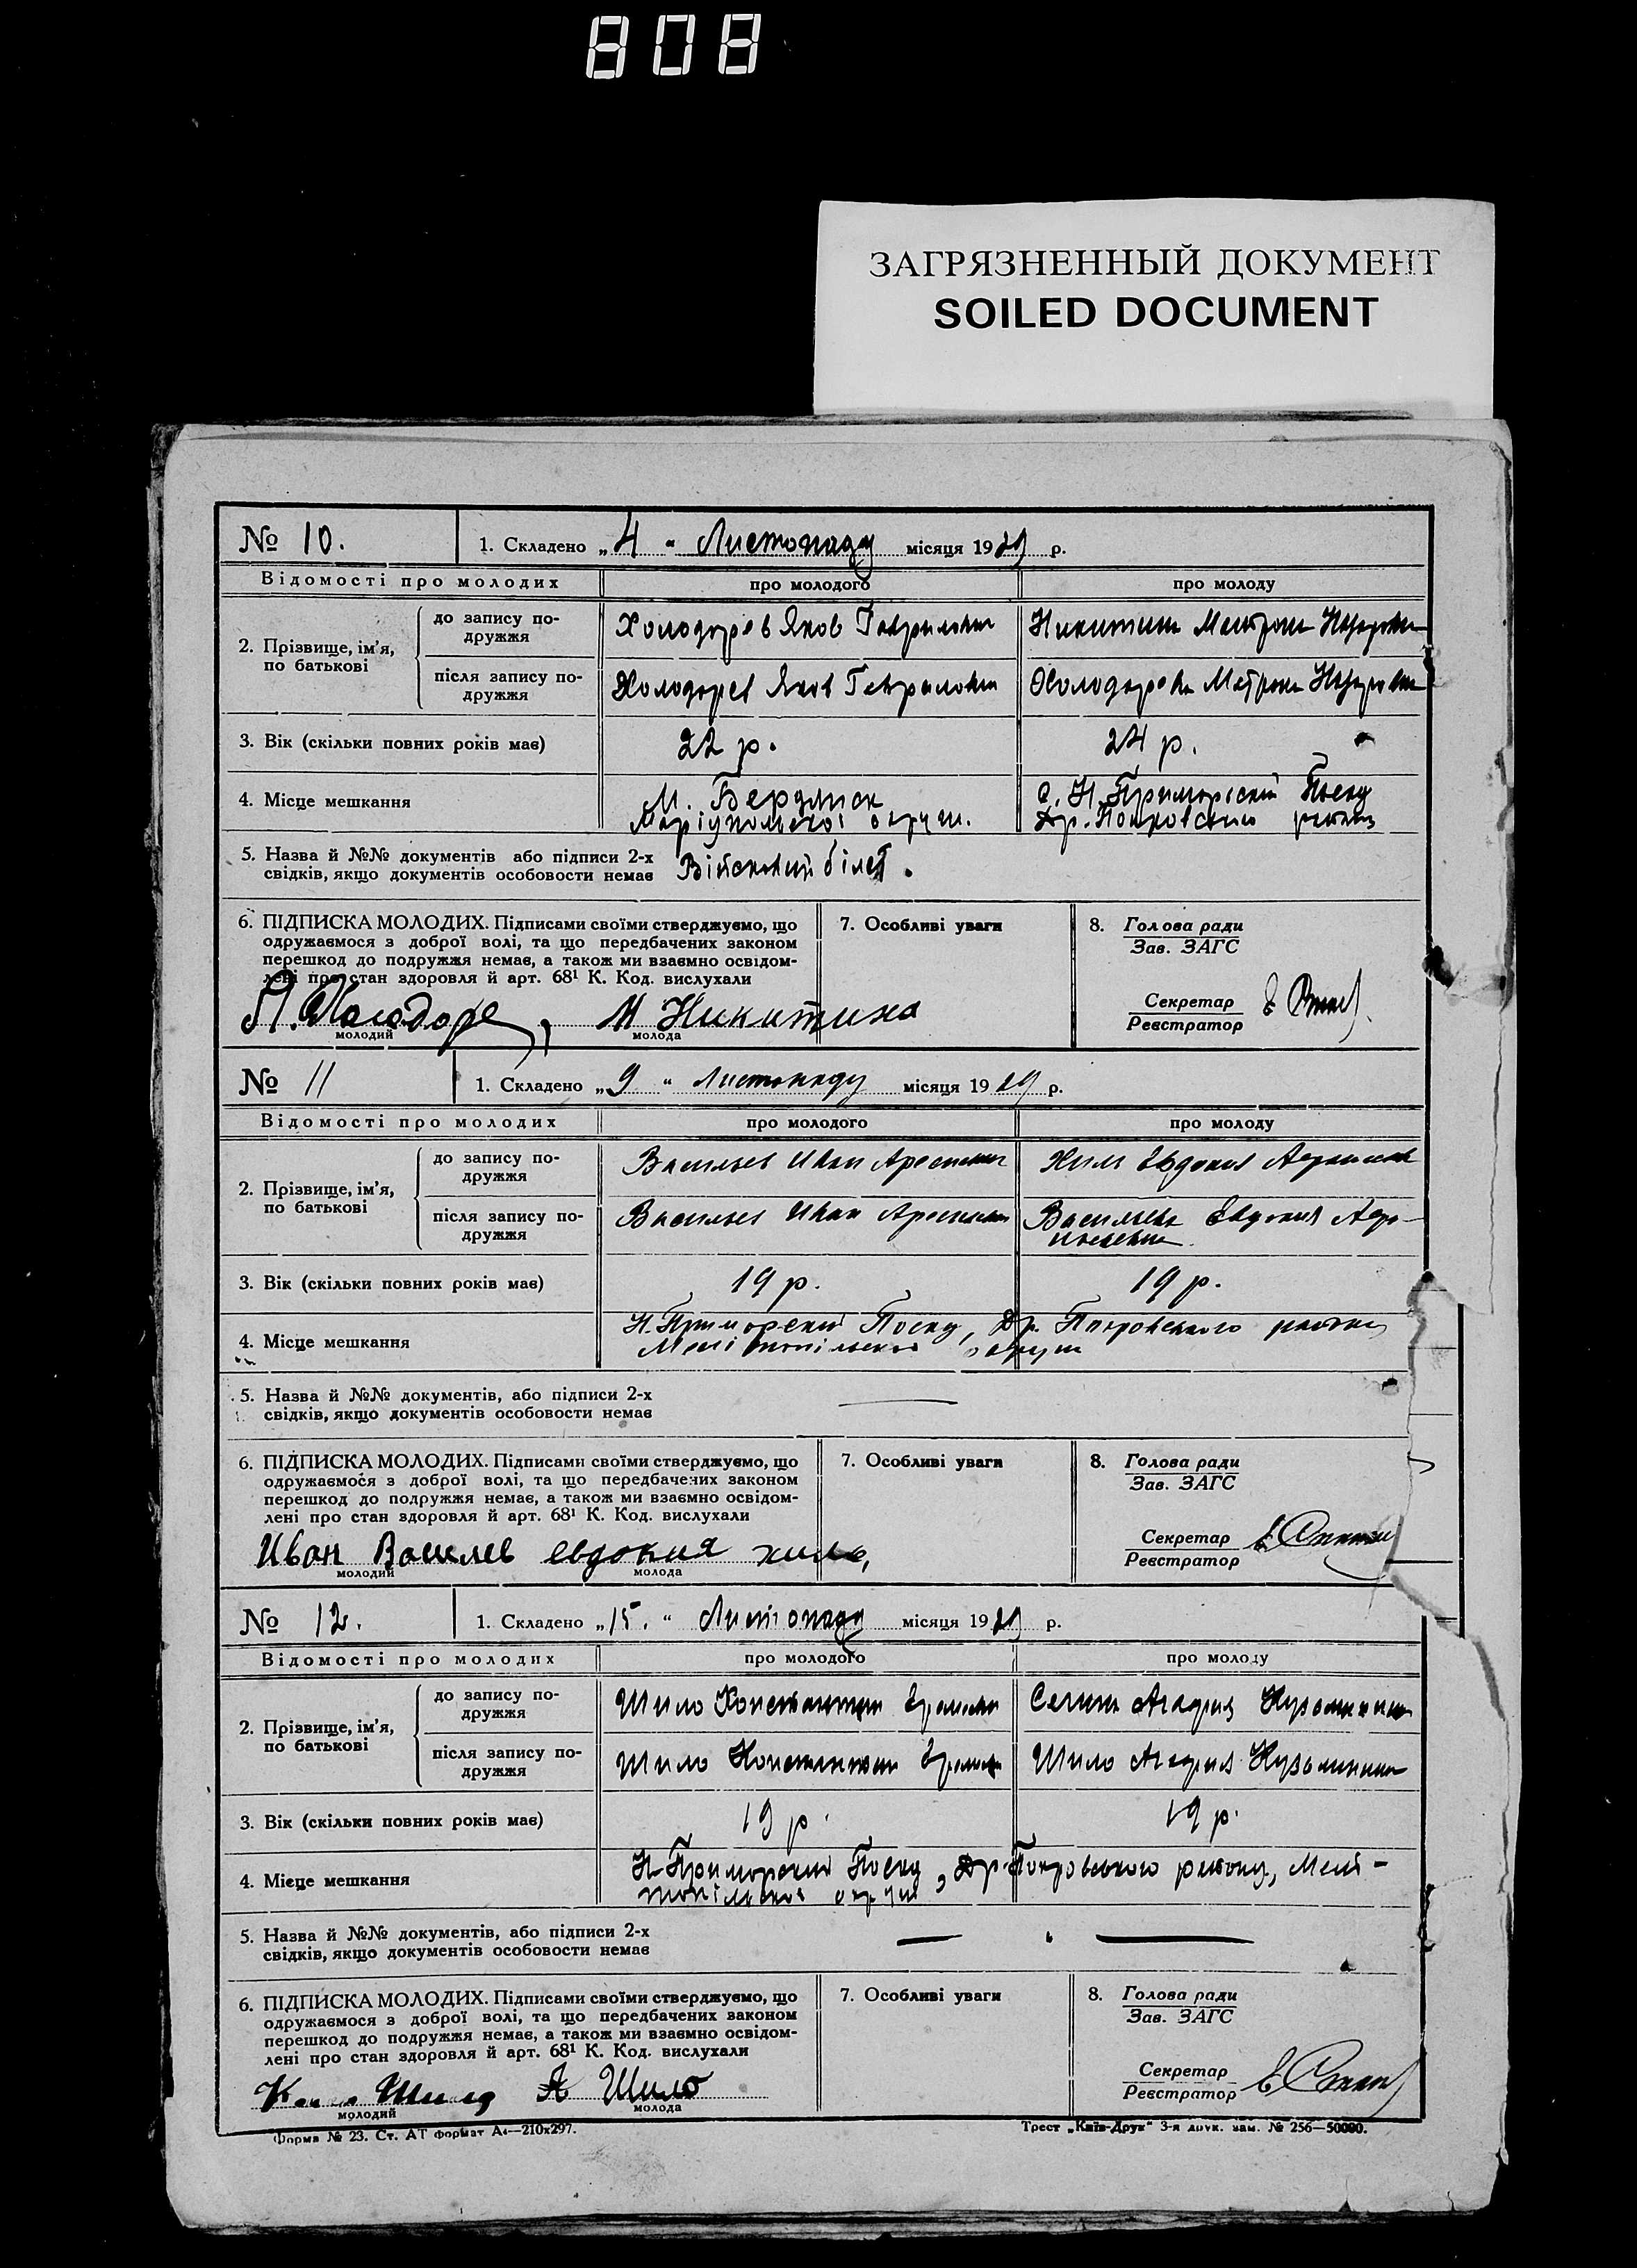 808
ЗАГРЯЗНЕННЫЙ ДОКУМЕНТ
SOILED DOCUMENT
№ 10. 1. Складено „4“ Листопаду місяця 1929 р.
Відомості про молодих про молодого про молоду
2. Прізвище, ім'я, по батькові
до запису подружжя Холодорев Яков Никитина Матрона
після запису подружжя Холодорев Яков Холодорева Матрона
3. Вік (скільки повних років має) 22 р. 24 р.
4. Місце мешкання М. Бердянск С. Н. Приморский Посад
Маріупольської округи. Др. Покровского
5. Назва й №№ документів або підписи 2-х
свідків, якщо документів особовости немає Військовий білет.
6. ПІДПИСКА МОЛОДИХ. Підписами своїми стверджуємо, що
одружаємося з доброї волі, та що передбачених законом
перешкод до подружжя немає, а також ми взаємно освідом-
лені про стан здоровля й арт. 68¹ К. Код. вислухали
М Никитина
молодий молода
7. Особливі уваги
8. Голова ради
Зав. ЗАГС
Секретар
Реєстратор
№ 11 1. Складено „9“ Листопаду місяця 1929 р.
Відомості про молодих про молодого про молоду
2. Прізвище, ім'я, по батькові
до запису подружжя Васильев Иван Евдокия
після запису подружжя Васильев Иван Васильева Евдокия
3. Вік (скільки повних років має) 19 р. 19 р.
4. Місце мешкання Н. Приморский Посад, Др. Покровського району
Мелітопільської округи
5. Назва й №№ документів, або підписи 2-х
свідків, якщо документів особовости немає —
6. ПІДПИСКА МОЛОДИХ. Підписами своїми стверджуємо, що
одружаємося з доброї волі, та що передбачених законом
перешкод до подружжя немає, а також ми взаємно освідом-
лені про стан здоровля й арт. 68¹ К. Код. вислухали
Иван Василев евдокия
молодий молода
7. Особливі уваги
8. Голова ради
Зав. ЗАГС
Секретар
Реєстратор
№ 12. 1. Складено „15.“ Листопаду місяця 1929 р.
Відомості про молодих про молодого про молоду
2. Прізвище, ім'я, по батькові
до запису подружжя Шило Константин
після запису подружжя Шило Константин Шило
3. Вік (скільки повних років має) 19 р. 19 р.
4. Місце мешкання Н-Приморский Посад, Др-Покровського району, Мелі-
топільської округи
5. Назва й №№ документів, або підписи 2-х
свідків, якщо документів особовости немає — —
6. ПІДПИСКА МОЛОДИХ. Підписами своїми стверджуємо, що
одружаємося з доброї волі, та що передбачених законом
перешкод до подружжя немає, а також ми взаємно освідом-
лені про стан здоровля й арт. 68¹ К. Код. вислухали
Шило А Шило
молодий молода
7. Особливі уваги
8. Голова ради
Зав. ЗАГС
Секретар
Реєстратор
Форма № 23. Ст. АТ формат А₄—210х297. Трест „Київ-Друк“ 3-я друк. зам. № 256—50000.